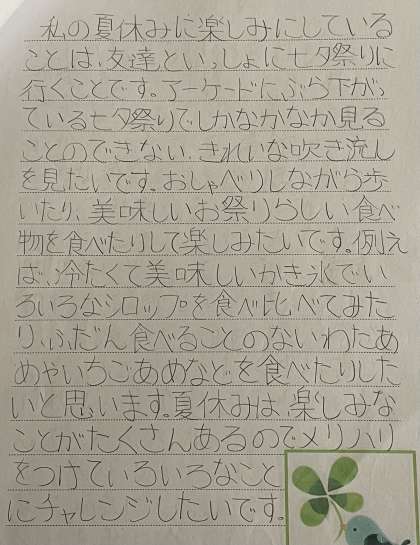 私の夏休みに楽しみにしている
ことは、友達といっしょに七夕祭りに
行くことです。アーケードに、ぶら下がっ
ている七夕祭りでしかなかなか見る
ことのできない、きれいな吹き流し
を見たいです。おしゃべりしながら歩
いたり、美味しいお祭りらしい食べ
物を食べたりして楽しみたいです。例え
ば、冷たくて美味しいかき氷でい
ろいろなシロップを食べ比べてみた
り、ふだん食べることのないわたあ
めやいちごあめなどを食べたりした
いと思います。夏休みは、楽しみな
ことがたくさんあるのでメリハリ
をつけていろいろなこと
にチャレンジしたいです。